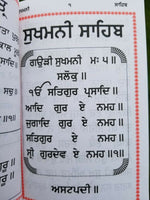 ਸੁਖਮਨੀ
ਸਾਹਿਬ
ਸੁਖਮਨੀ ਸਾਹਿਬ
ਗਉੜੀ ਸੁਖਮਨੀ ਮਃ ੫॥
ਸਲੋਕੁ॥
ੴ ਸਤਿਗੁਰ ਪ੍ਰਸਾਦਿ॥
ਆਦਿ ਗੁਰ ਏ ਨਮਹ॥
ਜੁਗਾਦਿ ਗੁਰ ਏ ਨਮਹ॥
ਸਤਿਗੁਰ ਏ ਨਮਹ॥
ਸ੍ਰੀ ਗੁਰਦੇਵ ਏ ਨਮਹ॥੧॥
ਅਸਟਪਦੀ॥